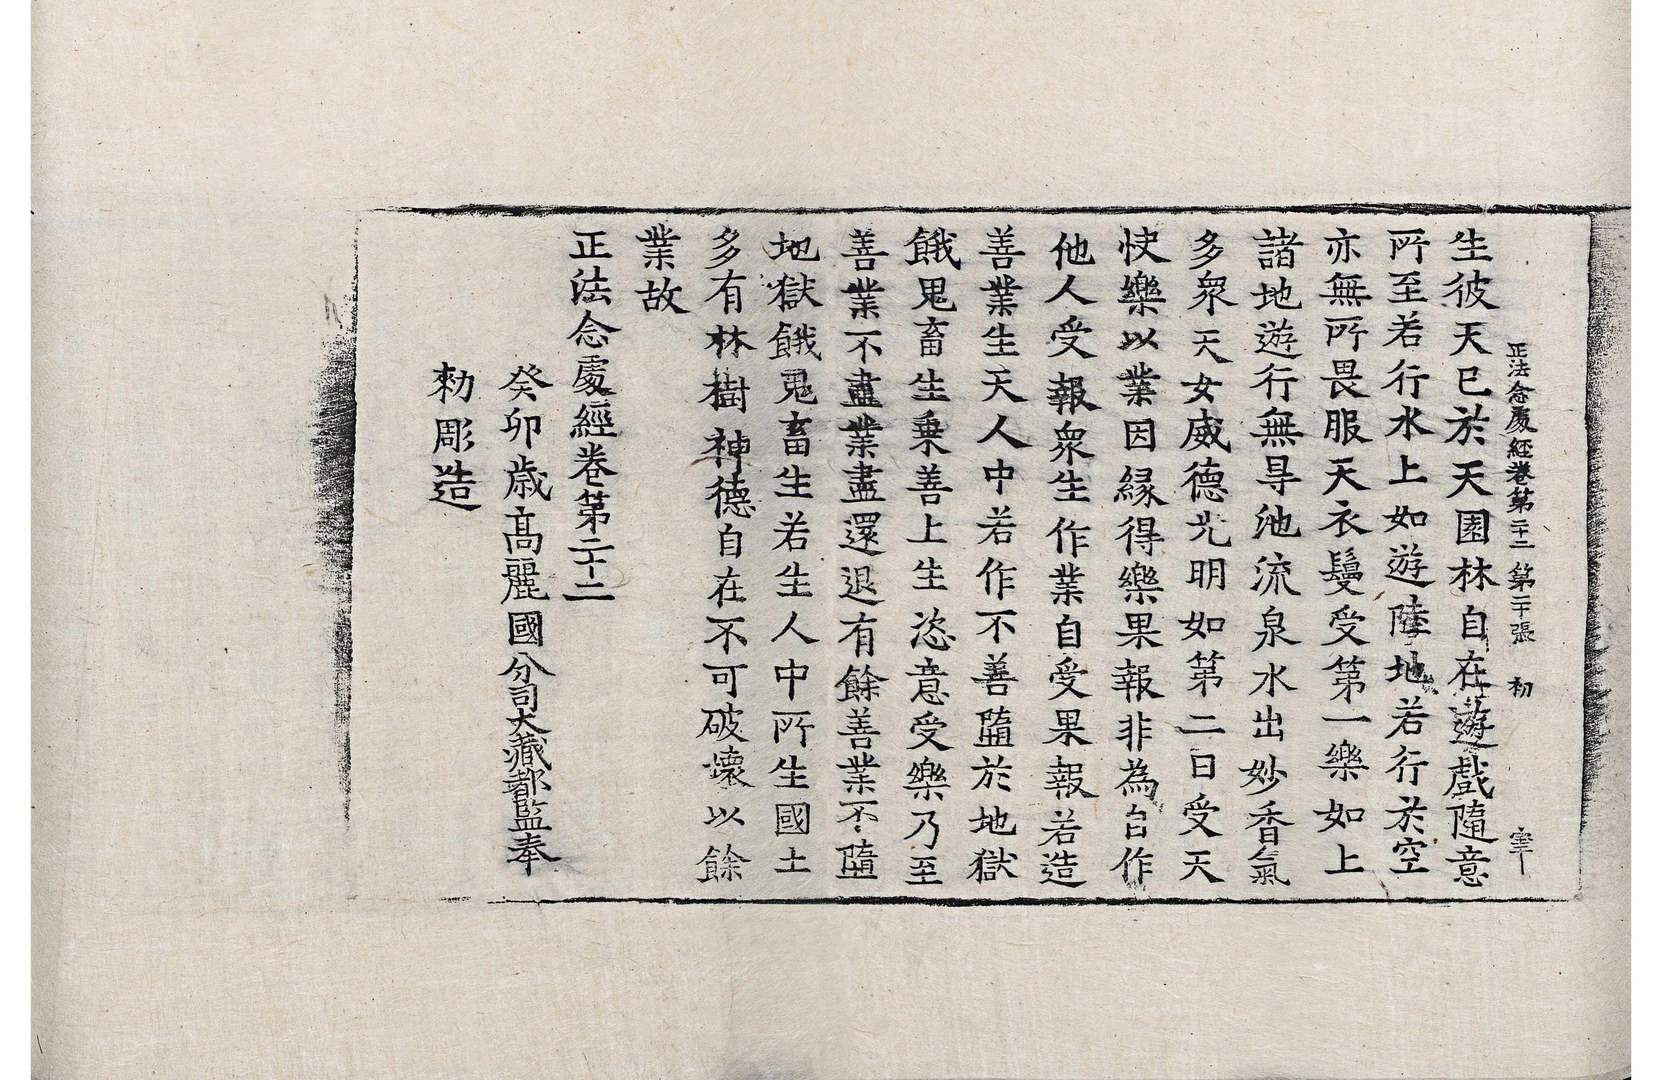 正法念處經卷第二十二 第二十張 初
生彼天已於天園林自在遊戲隨意
所至若行水上如遊陸地若行於空
亦無所畏服天衣鬘受第一樂如上
諸地遊行無㝵池流泉水出妙香氣
多衆天女威德光明如第二日受天
快樂以業因緣得樂果報非為自作
他人受報衆生作業自受果報若造
善業生天人中若作不善墮於地獄
餓鬼畜生乗善上生恣意受樂乃至
善業不盡業盡還退有餘善業不墮
地獄餓鬼畜生若生人中所生國土
多有林樹神德自在不可破壞以餘
業故
正法念處經卷第二十二
癸卯歲高麗國分司大藏都監奉
勅彫造